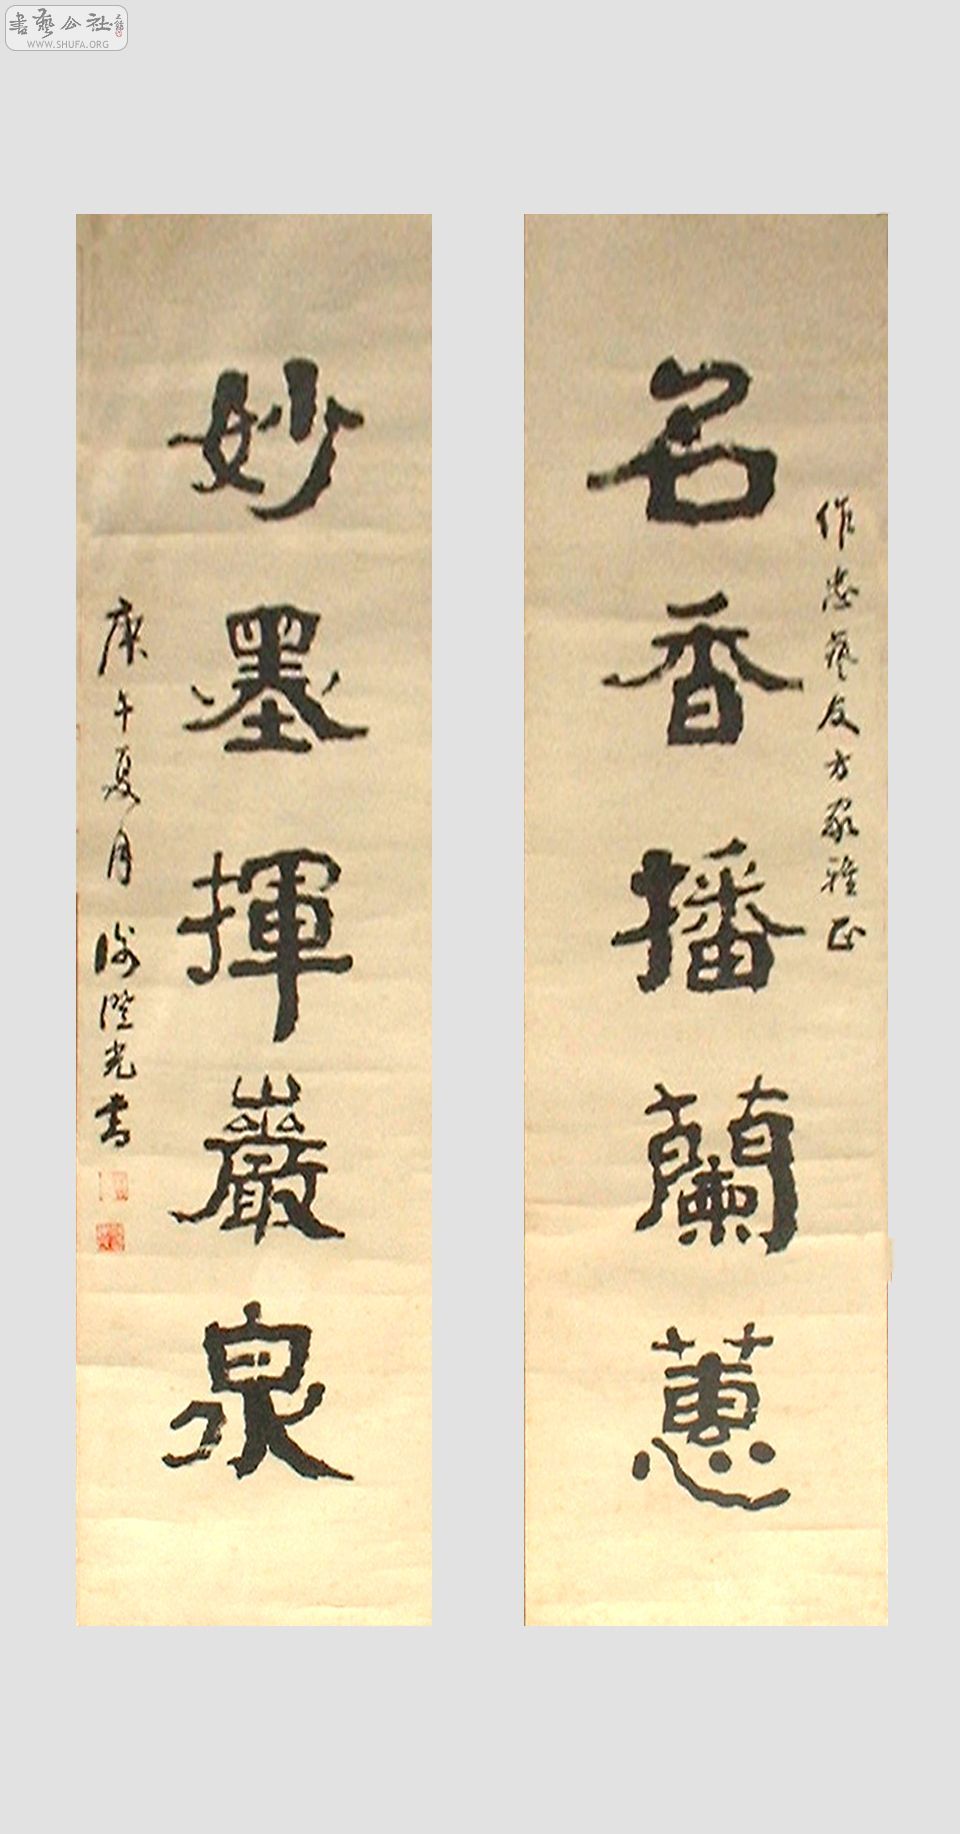 書藝公社
WWW.SHUFA.ORG
作忠藝友方家雅正
名香播蘭蕙
妙墨揮巖泉
庚午夏月 謝澄光書